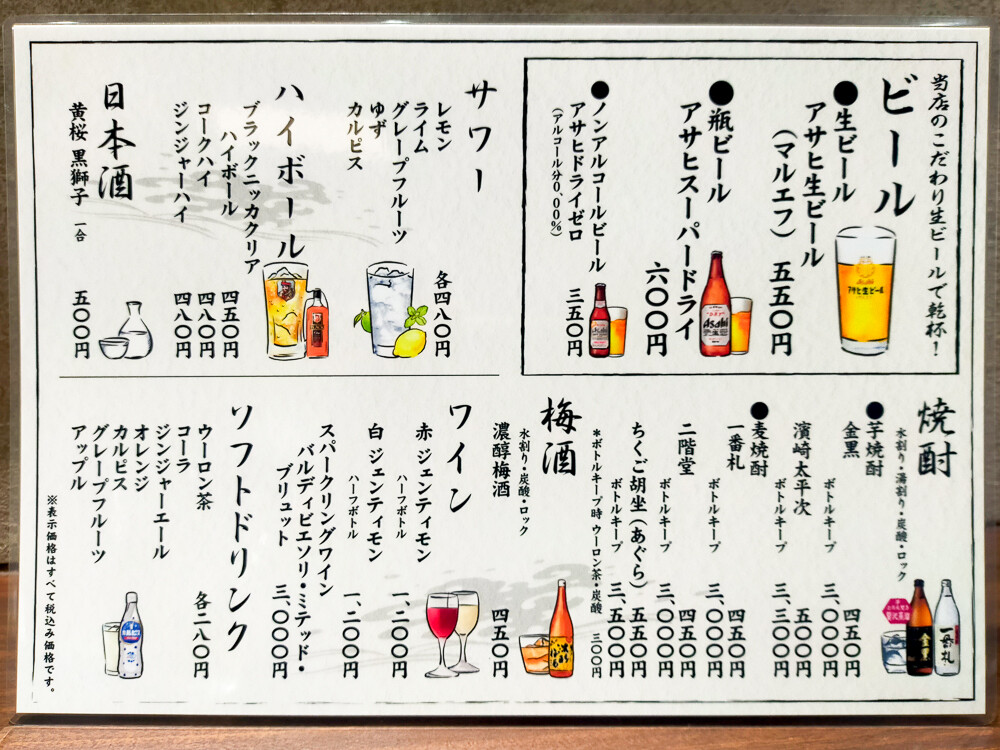 当店のこだわり生ビールで乾杯！
ビール
●生ビール
アサヒ生ビール
（マルエフ） 五五〇円
●瓶ビール
アサヒスーパードライ
六〇〇円
●ノンアルコールビール
アサヒドライゼロ
（アルコール分0.00%） 三五〇円
サワー
レモン
ライム
グレープフルーツ
ゆず
カルピス
各四八〇円
ハイボール
ブラックニッカクリア
ハイボール 四五〇円
コークハイ 四八〇円
ジンジャーハイ 四八〇円
日本酒
黄桜 黒獅子 一合 五〇〇円
焼酎
水割り・湯割り・炭酸・ロック
●芋焼酎
金黒 四五〇円
ボトルキープ 三、〇〇〇円
濱崎太平次 五五〇円
ボトルキープ 三、三〇〇円
●麦焼酎
一番札 四五〇円
ボトルキープ 三、〇〇〇円
二階堂 四五〇円
ボトルキープ 三、〇〇〇円
ちくご胡坐（あぐら） 五五〇円
ボトルキープ 三、五〇〇円
*ボトルキープ時 ウーロン茶・炭酸 三〇〇円
梅酒
水割り・炭酸・ロック
濃醇梅酒 四五〇円
ワイン
赤 ジェンティモン
ハーフボトル 一、二〇〇円
白 ジェンティモン
ハーフボトル 一、二〇〇円
スパークリングワイン
バルディビエソリ・ミテッド・
ブリュット 三、〇〇〇円
ソフトドリンク
ウーロン茶
コーラ
ジンジャーエール
オレンジ
カルピス
グレープフルーツ
アップル
各二八〇円
※表示価格はすべて税込み価格です。
Asahi
アサヒ生ビール
Asahi
金黒
一番札